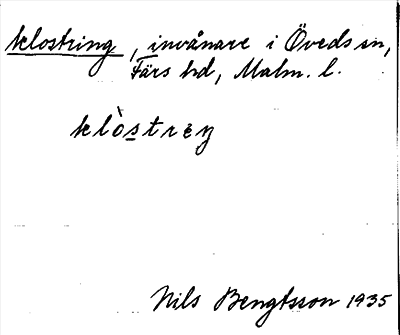 klostring, invånare i Öveds sn,
Färs hd, Malm. l.
klòstrɐŋ
Nils Bengtsson 1935